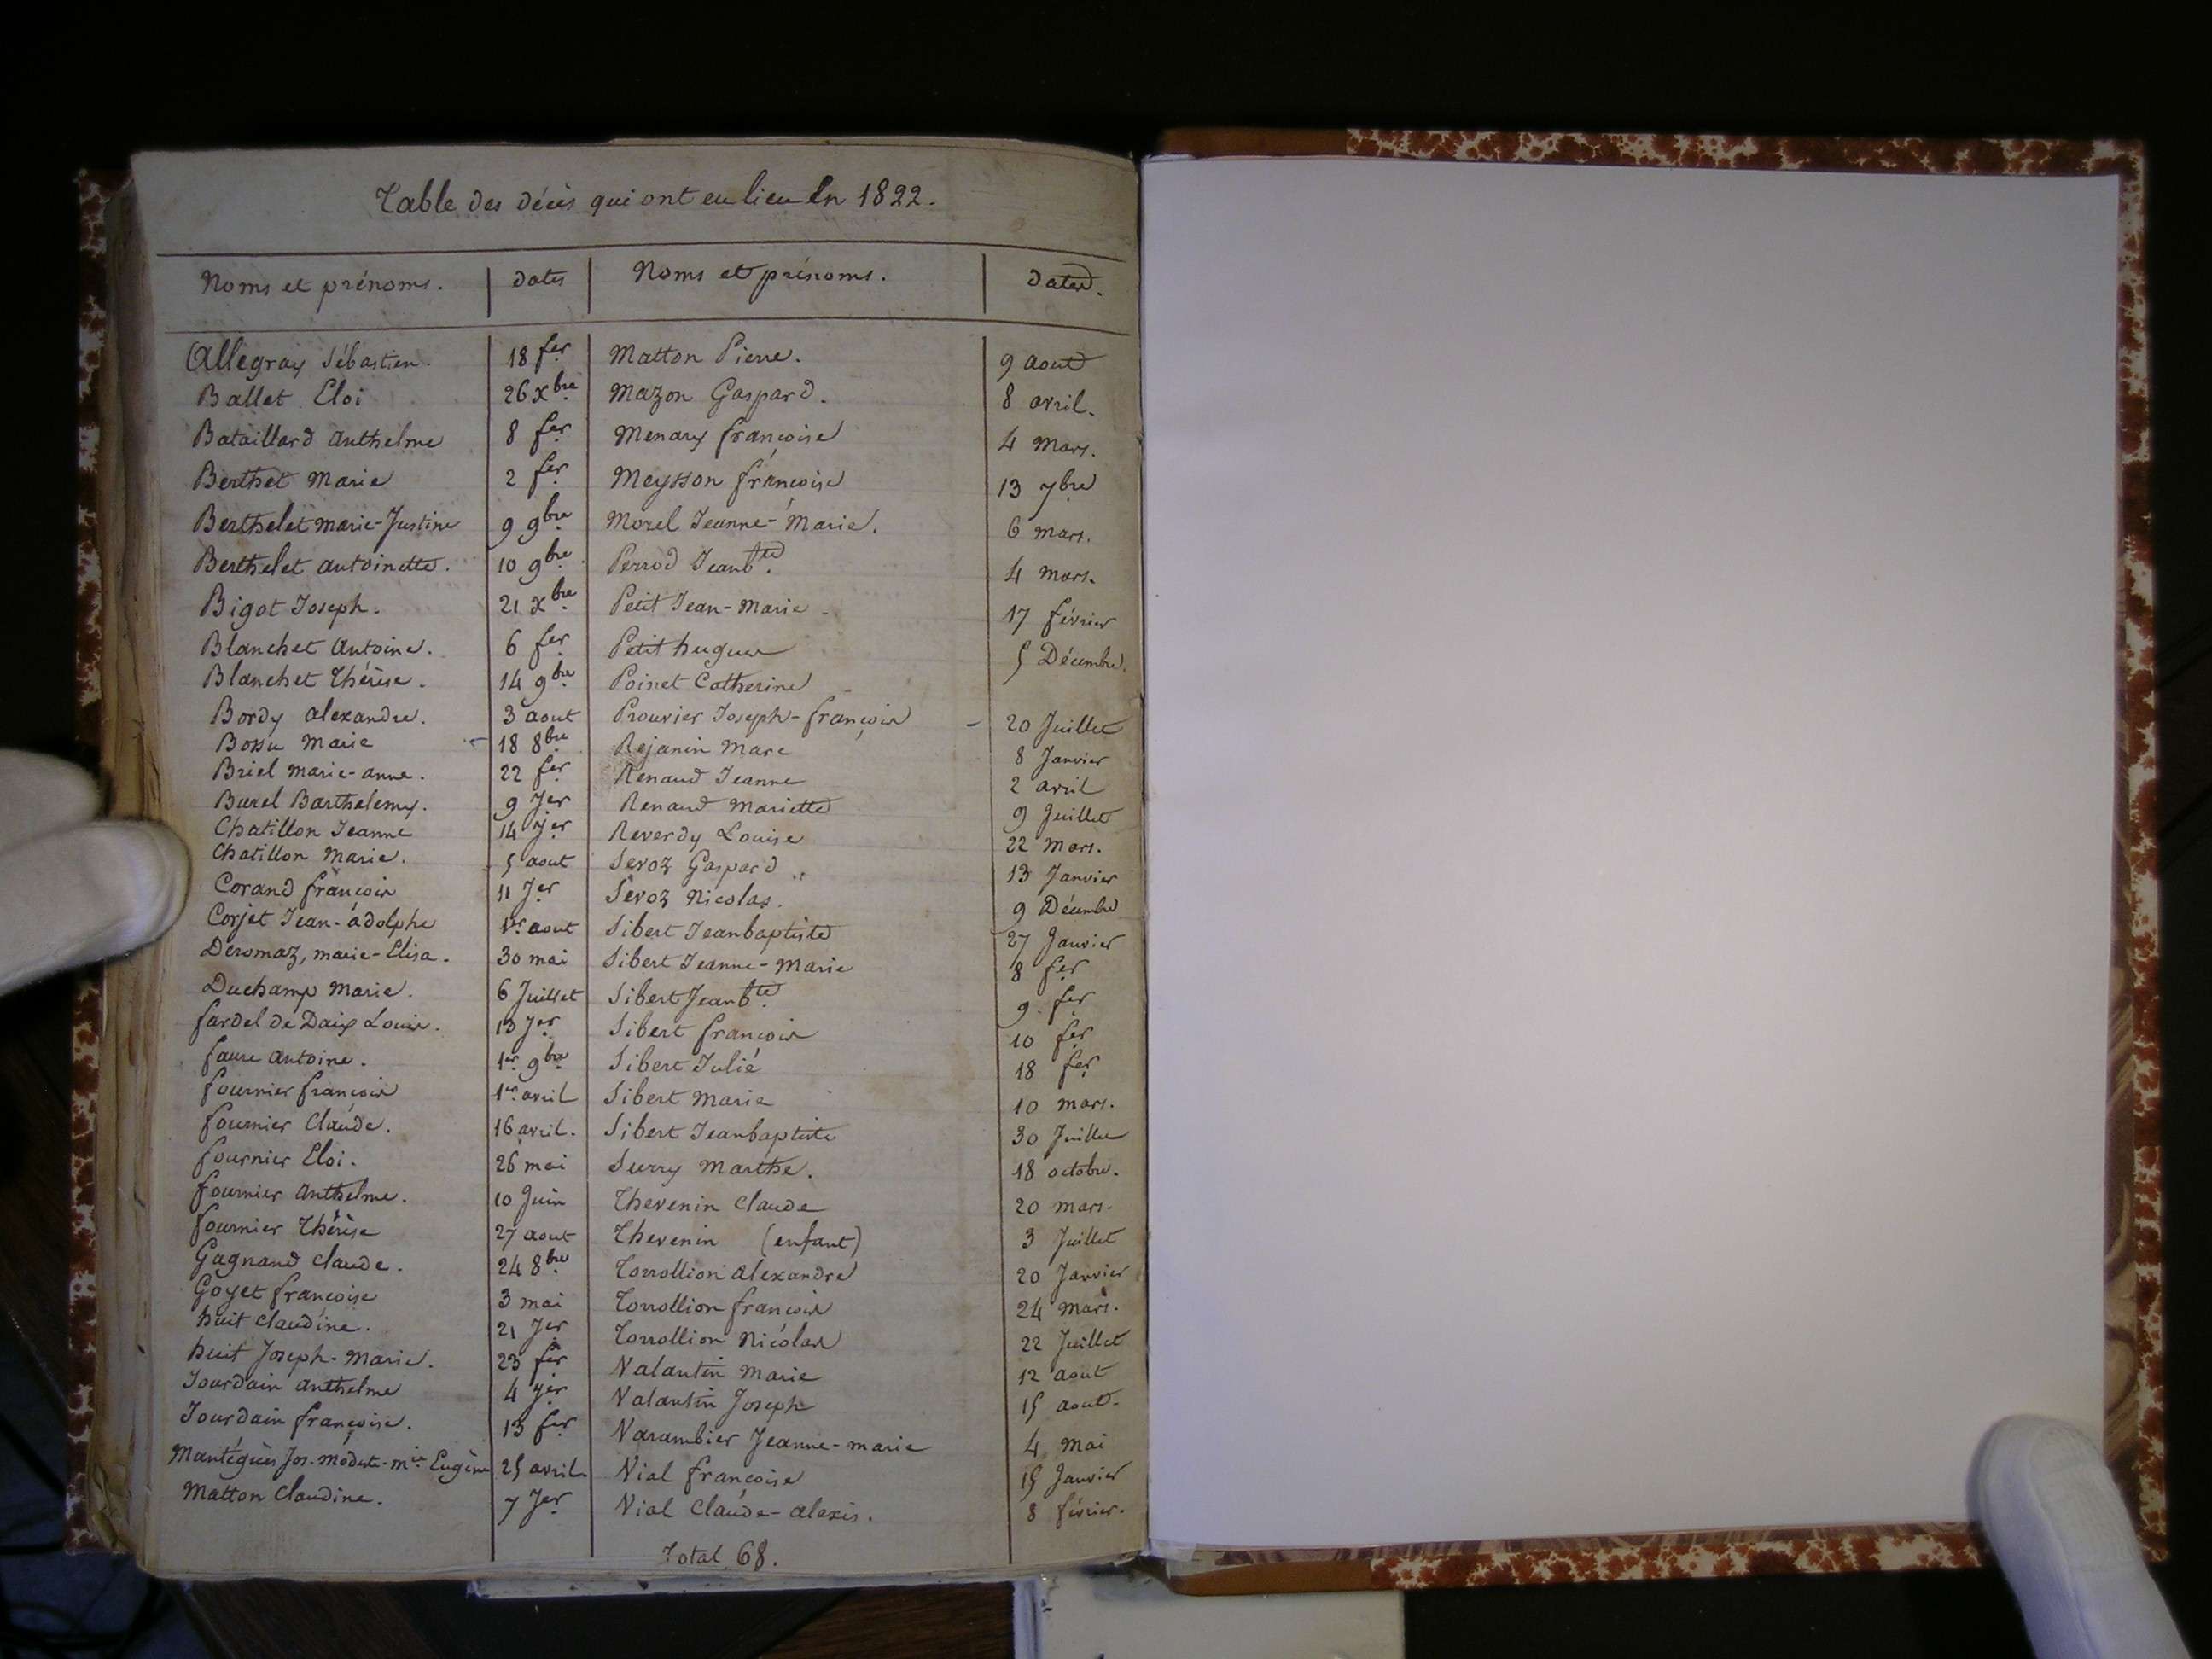 Table des décès qui ont eu lieu En 1822.
Noms et prénoms. dates Noms et prénoms. dates.
Allegray Sébastien. 18 fer Matton Pierre. 9 aout
Ballet Eloi 26 xbre Mazon Gaspard. 8 avril.
Bataillard Anthelme 8 fer Menary françoise 4 Mars.
Berthet Marie 2 fer Meysson françoise 13 7bre
Berthelet Marie-Justine 9 9bre Morel Jeanne-Marie. 6 mars.
Berthelet antoinette. 10 9bre Perrod Jean bte. 4 mars.
Bigot Joseph. 21 xbre Petit Jean-Marie 17 février
Blanchet Antoine. 6 fer Petit hugues 5 Décembre.
Blanchet Thérèse. 14 9bre Poinet Catherine
Bordy alexandre. 3 aout Prouvier Joseph-françois 20 Juillet
Bossu Marie 18 8bre Rejanin Marc 8 Janvier
Briel marie-anne. 22 fer Renaud Jeanne 2 avril
Burel Barthelemy. 9 Jer Renaud Mariette 9 Juillet
Chatillon Jeanne 14 Jer Reverdy Louise 22 Mars.
Chatillon Marie. 5 aout Sevoz Gaspard 13 Janvier
Corand françois 11 Jer Sevoz Nicolas. 9 Décembre
Corjet Jean-adolphe 1er aout Sibert Jeanbaptiste 27 Janvier
Deromaz, marie-Elisa. 30 mai Sibert Jeanne-Marie 8 fer
Duchamp Marie. 6 Juillet Sibert Jean bte 9 fer
fardel de Daix Louis. 13 Jer Sibert françois 10 fer
faure Antoine. 1er 9bre Sibert Julié 18 fer
fournier françois 1er avril Sibert Marie 10 mars.
fournier Claude. 16 avril. Sibert Jeanbaptiste 30 Juillet
fournier Eloi. 26 mai Surry Marthe. 18 octobre.
fournier Anthelme. 10 Juin Thevenin Claude 20 mars.
fournier Thérèse 27 aout Thevenin (enfant) 3 Juillet
Gagnand Claude. 24 8bre Torrollion alexandre 20 Janvier
Goyet françoise 3 mai Torrollion françois 24 mars.
huit Claudine. 21 Jer Torrollion Nicolas 22 Juillet
huit Joseph-Marie. 23 fer Valantin Marie 12 aout
Jourdain anthelme 4 Jer Valantin Joseph 15 aout.
Jourdain françoise. 13 fer Varambier Jeanne-marie 4 Mai
Mantégues Jos. modeste-mie Eugène 25 avril. Vial françoise 15 Janvier
Matton Claudine. 7 Jer Vial Claude-alexis. 8 février.
Total 68.